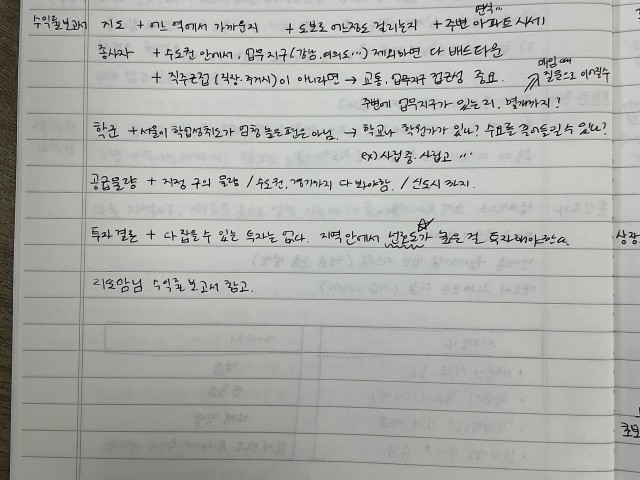 면적...
수익률보고서 지도 + 어느 역에서 가까운지 + 도보로 어느정도 걸리는지 + 주변 아파트 시세
종사자 + 수도권 안에서, 업무지구(강남, 여의도...) 제외하면 다 베드타운
매임 때
+ 직주근접(직장·주거지)이 아니라면 → 교통, 업무지구 접근성 중요. 질문으로 이어질수
주변에 업무지구가 있는지, 몇개까지?
학군 + 서울이 학업성취도가 엄청 높은 편은 아님. → 학교나 학원가가 있나? 수요를 끌어들일 수 있나?
ex) 사립중·사립고 ...
공급물량 + 지정 구의 물량 / 수도권, 경기까지 다 봐야함. / 신도시 까지.
투자결론 + 다 잡을 수 있는 투자는 없다. 지역 안에서 선호도가 높은 걸 투자해야한다. 상장
리스맘님 수익률 보고서 참고.
초보